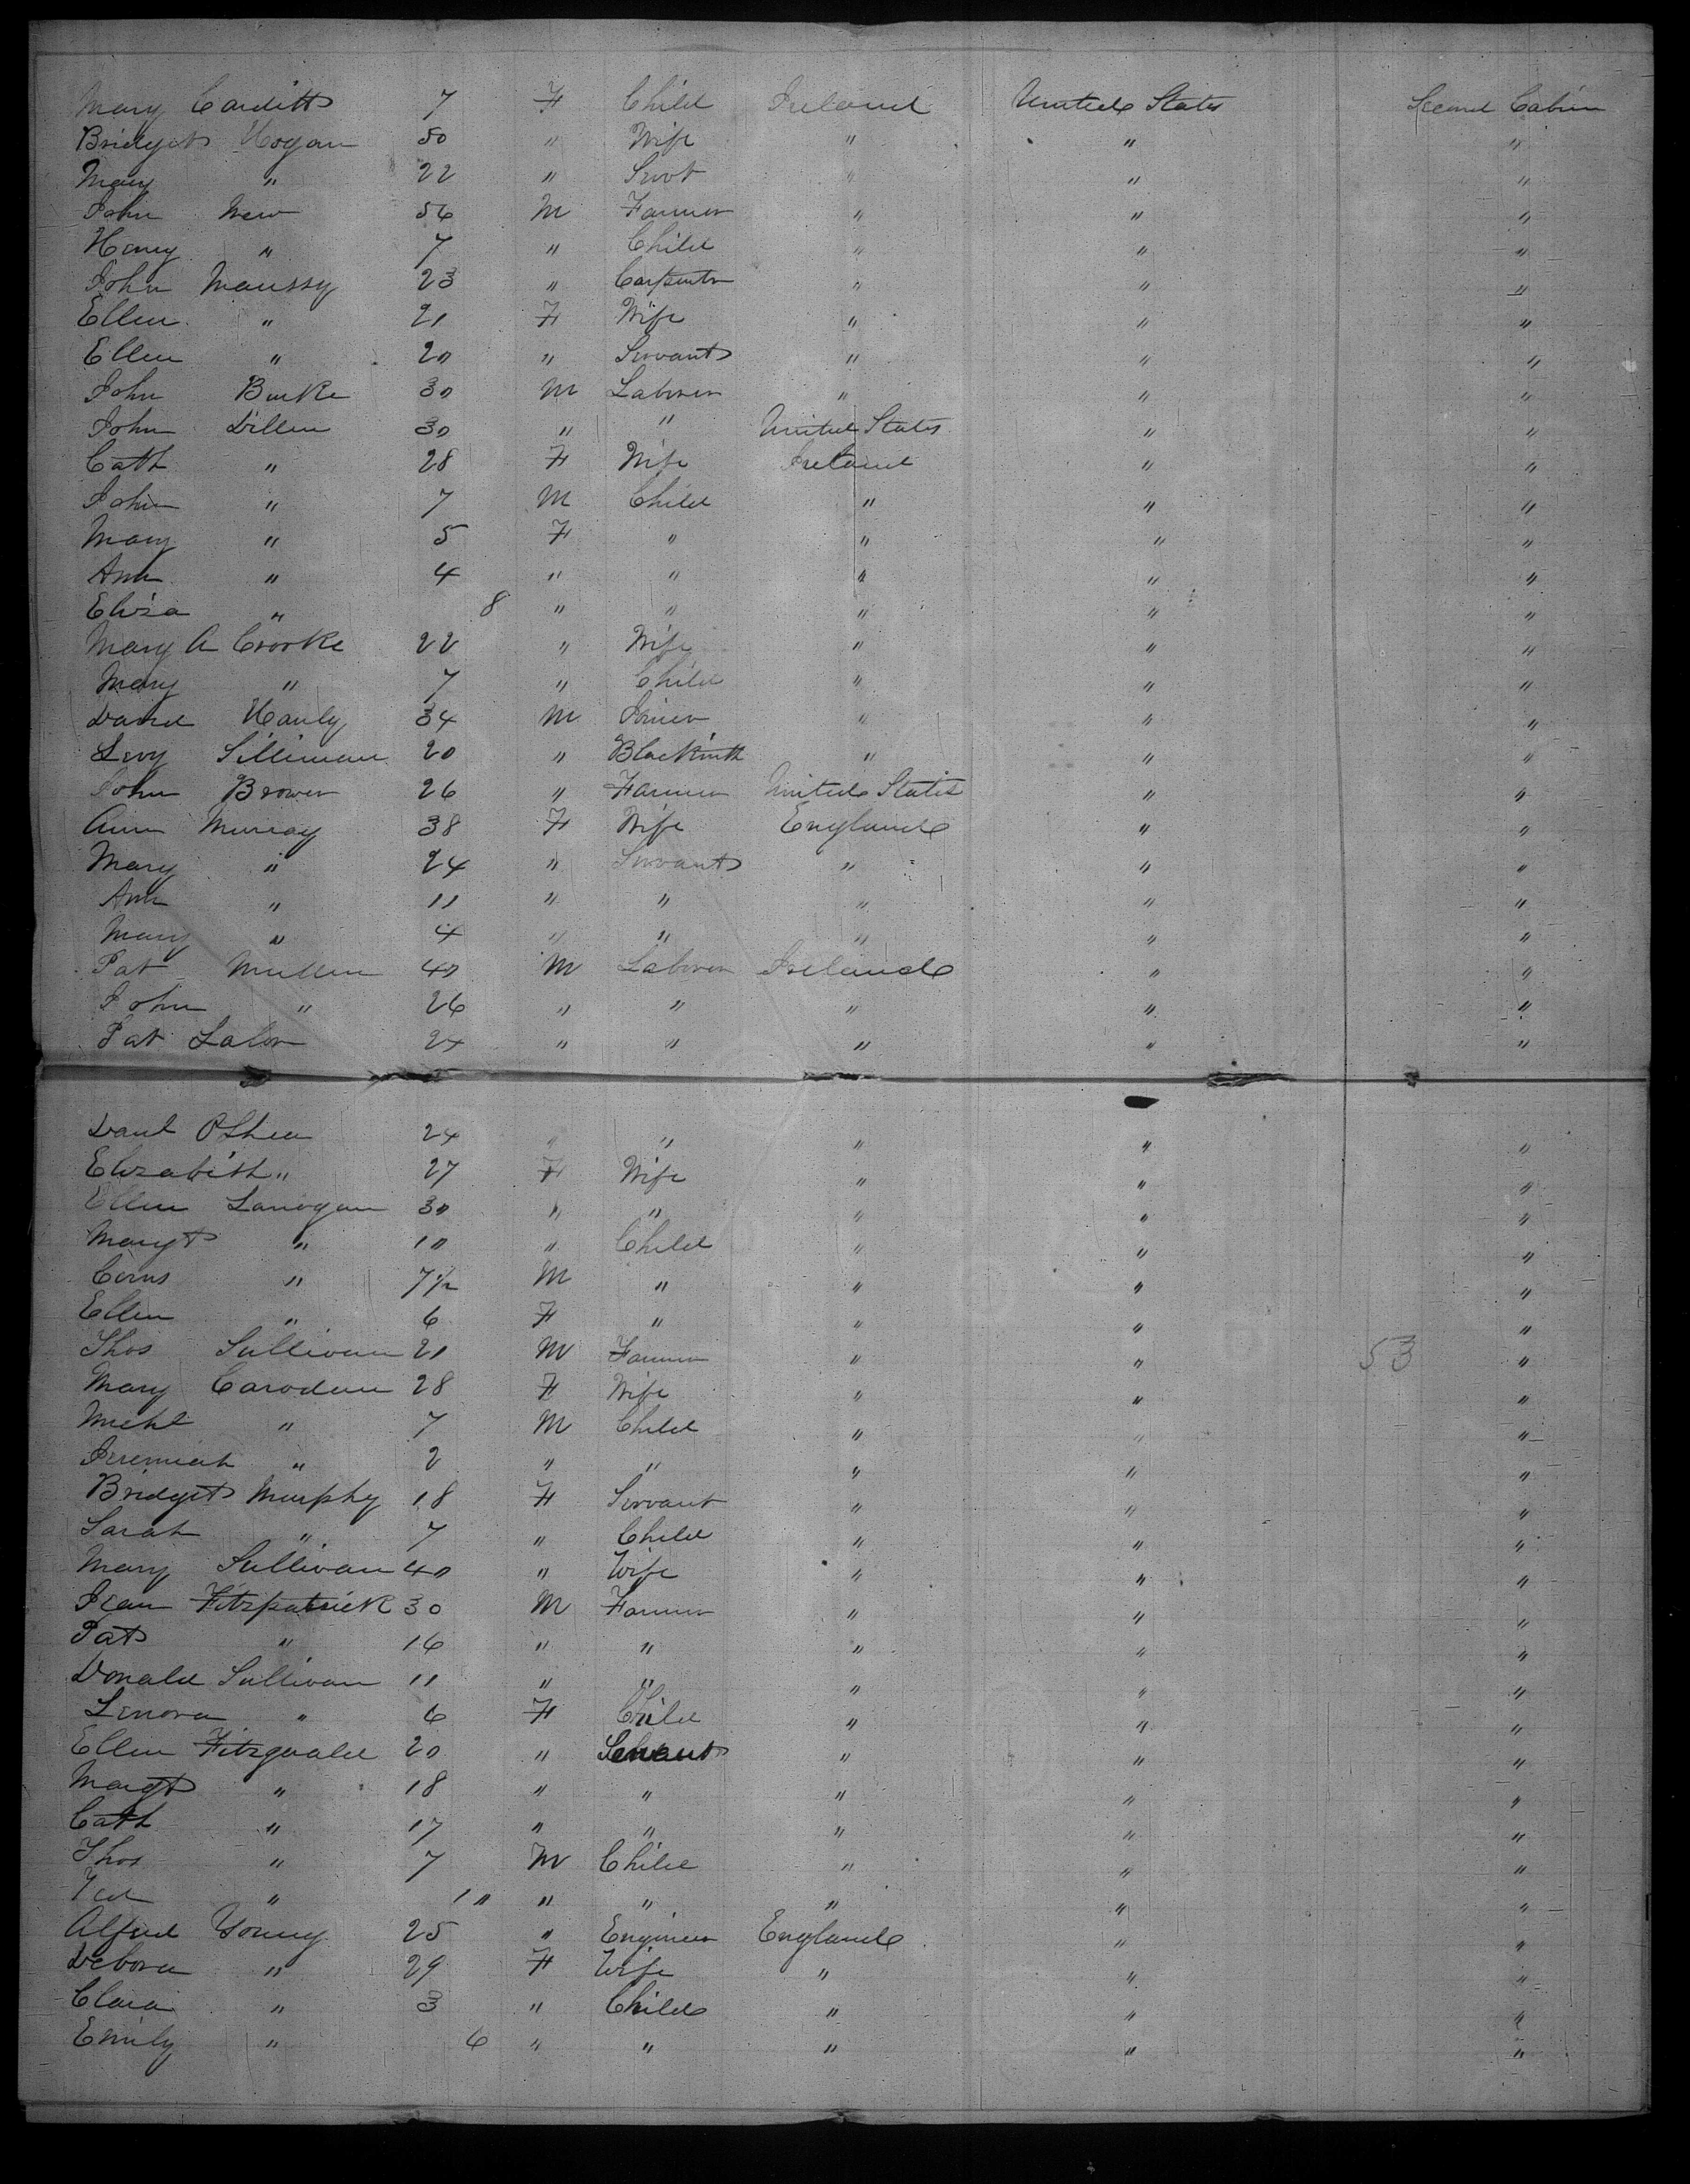 Mary Carditt 7 F Child Ireland United States Second Cabin
Bridget Hogan 50 " Wife " " "
Mary " 22 " Srvt " " "
John New 56 M Farmer " " "
Henry " 7 " Child " " "
John Maussy 23 " Carpenter " " "
Ellen " 21 F Wife " " "
Ellen " 20 " Servant " " "
John Burke 30 M Laborer " " "
John Dillen 30 " " United States " "
Cath " 28 F Wife Ireland " "
John " 7 M Child " " "
Mary " 5 F " " " "
Ann " 4 " " " " "
Eliza " 8 " " " " "
Mary A Crooke 22 " Wife " " "
Mary " 7 " Child " " "
David Hanly 34 M Joiner " " "
Levy Silliman 20 " Blacksmith " " "
John Brower 26 " Farmer United States " "
Ann Murray 38 F Wife England " "
Mary " 24 " Servant " " "
Ann " 11 " " " " "
Mary " 4 " " " " "
Pat Mullen 40 M Laborer Ireland " "
John " 26 " " " " "
Pat Lalor 24 " " " " "
Danl OShea 24 " " " " "
Elizabeth " 27 F Wife " " "
Ellen Lanogan 30 " " " " "
Margt " 10 " Child " " "
Corns " 7½ M " " " "
Ellen " 6 F " " " "
Thos Sullivan 21 M Farmer " " 53 "
Mary Caroden 28 F Wife " " "
Michl " 7 M Child " " "
Jeremiah " 2 " " " " "
Bridget Murphy 18 F Servant " " "
Sarah " 7 " Child " " "
Mary Sullivan 40 " Wife " " "
Jean Fitzpatrick 30 M Farmer " " "
Pat " 16 " " " " "
Donald Sullivan 11 " " " " "
Lenora " 6 F Child " " "
Ellen Fitzgerald 20 " Servant " " "
Margt " 18 " " " " "
Cath " 17 " " " " "
Thos " 7 M Child " " "
" 10 " " " " "
Alfred Young 25 " Engineer England " "
Debora " 29 F Wife " " "
Clara " 3 " Child " " "
Emily " 6 " " " " "